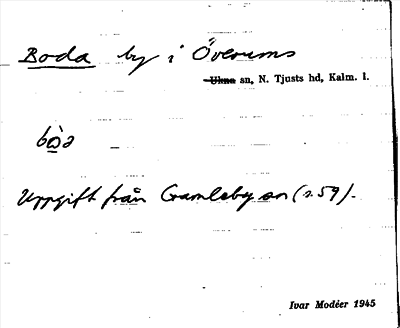 Boda by i Överums
Ukna sn, N. Tjusts hd, Kalm. l.
Uppgift från Gamleby sn (s. 59).
Ivar Modéer 1945